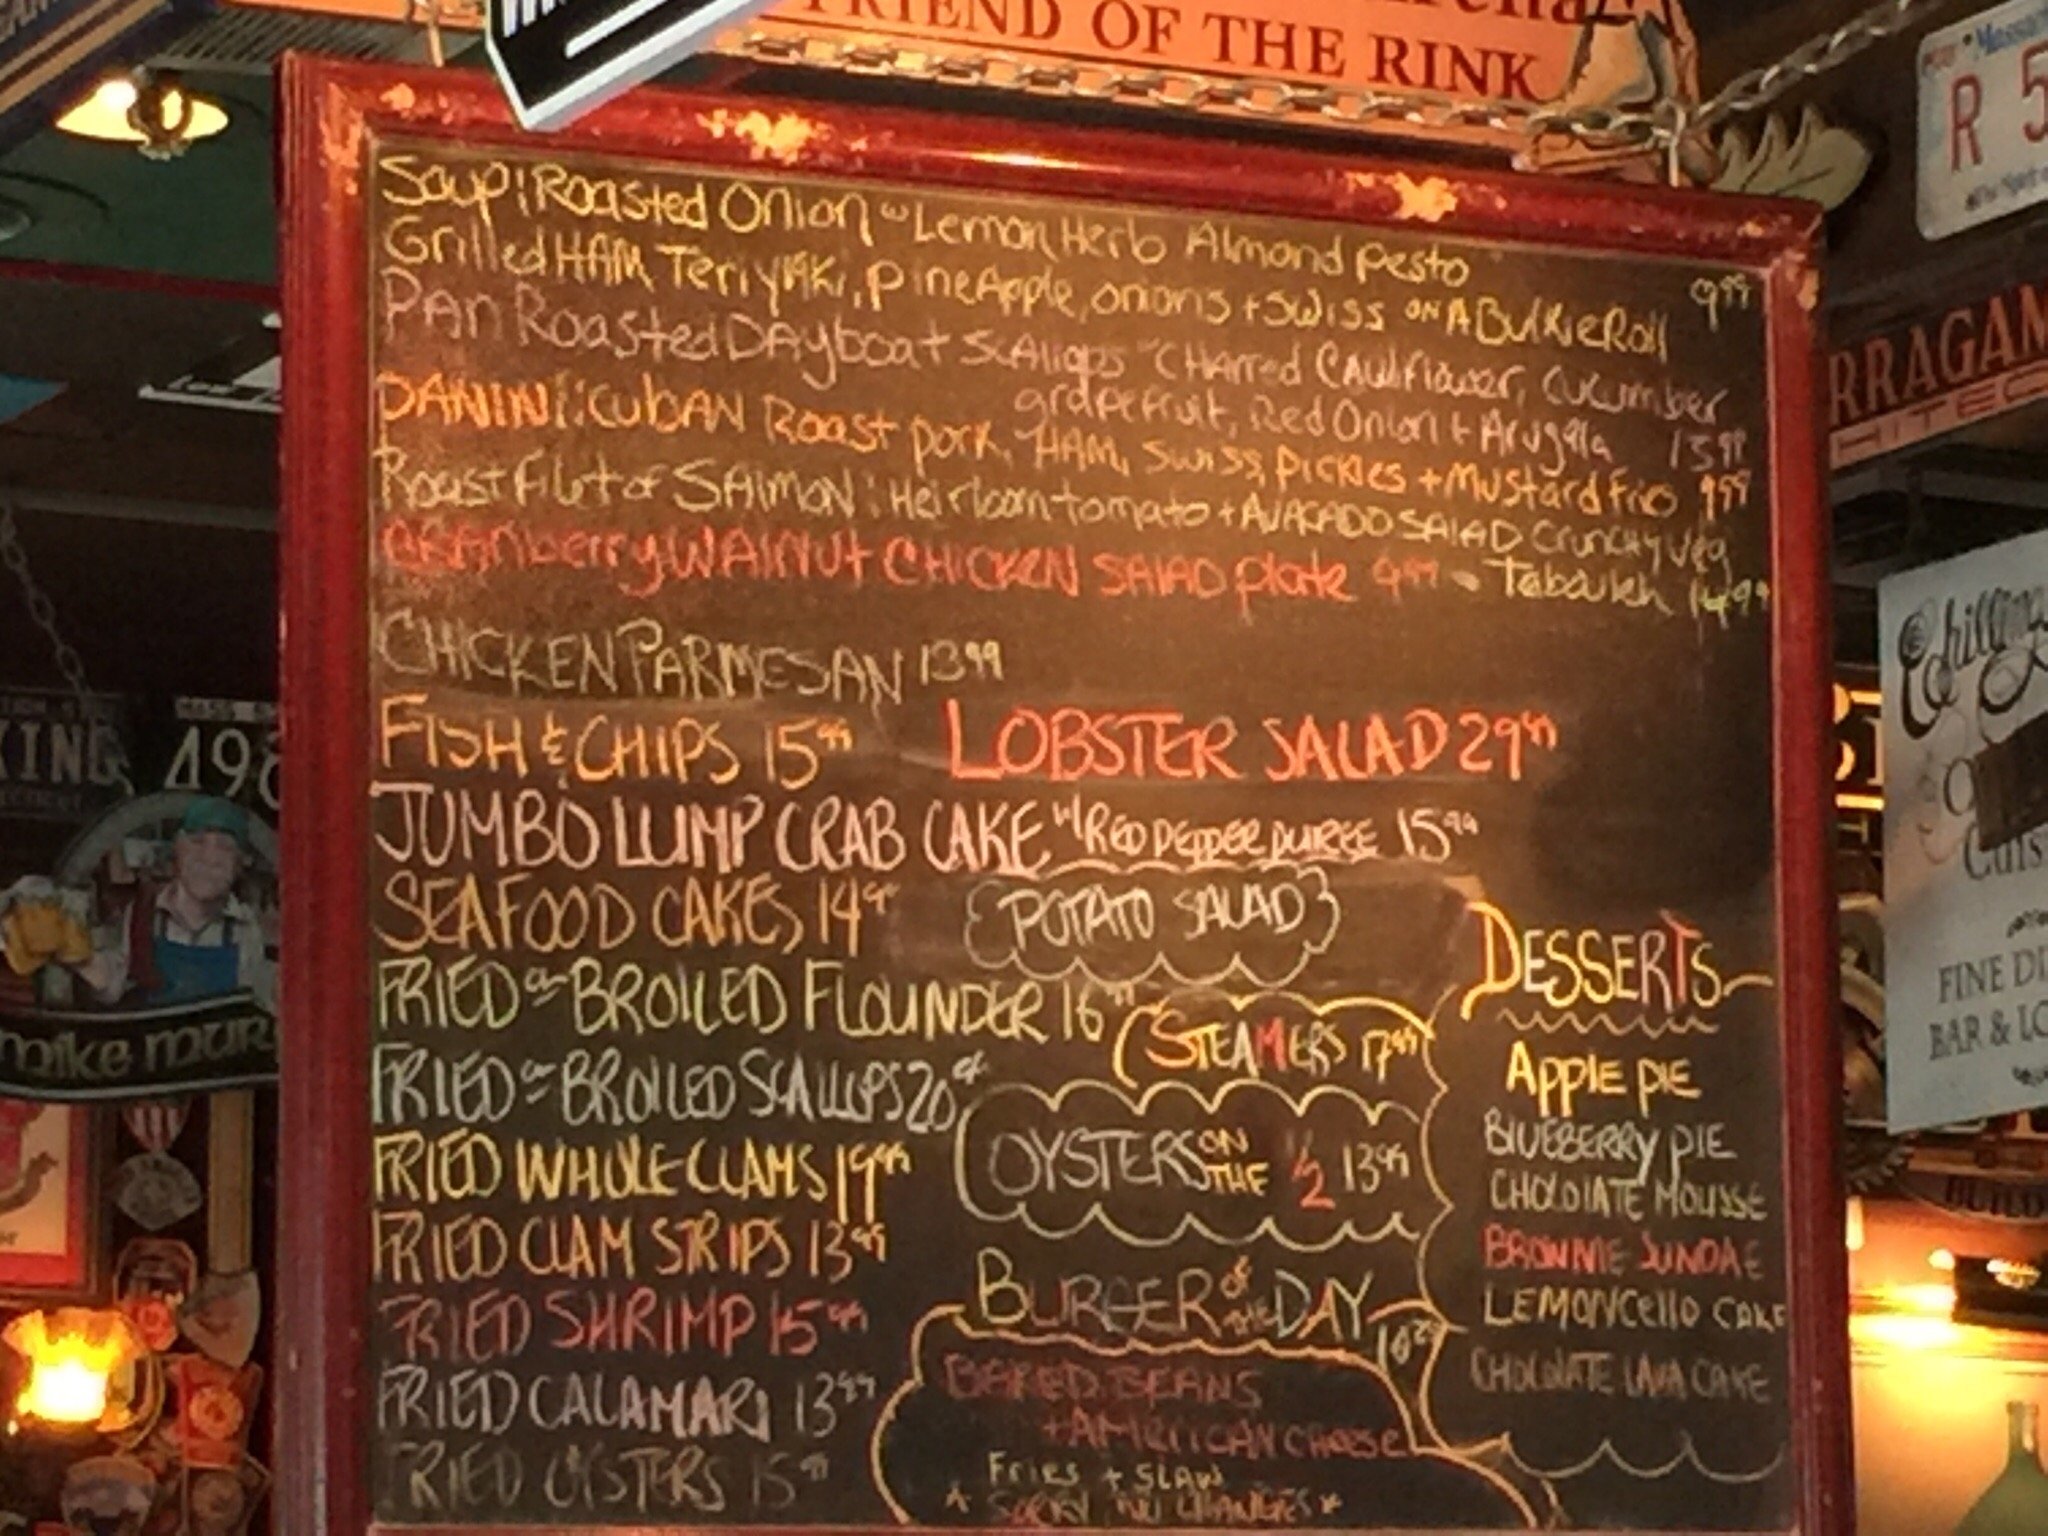 FRIEND OF THE RINK
R 5
Soup: Roasted Onion w Lemon Herb Almond Pesto
Grilled HAM Teriyaki, PineApple, onions + Swiss ON A Bulkie Roll 9.99
PAN Roasted Dayboat Scallops w CHARRed CAuliflower, Cucumber
grapefruit, Red Onion + Arugala 15.99
PANINI: CUBAN Roast pork, HAM, Swiss, Pickles + Mustard Fries 9.99
Roast Filet of SAlmoN: Heirloom tomato + AVACADO SAlAD Crunchy Veg
Tabouleh 14.99
CRANberry WAlNut CHICKEN SAlAD plate 9.99
CHICKEN PARMESAN 13.99
FISH & CHIPS 15.99 LOBSTER SALAD 29.99
JUMBO LUMP CRAB CAKE W/ RED PEPPER PUREE 15.99
SEAFOOD CAKES 14.99
POTATO SALAD
FRIED or BROILED FLOUNDER 16.99
STEAMERS 17.99
FRIED or BROILED SCALLOPS 20.99
OYSTERS ON THE 1/2 13.99
FRIED WHOLE CLAMS 19.99
FRIED CLAM STRIPS 13.99
FRIED SHRIMP 15.99
FRIED CALAMARI 13.99
FRIED OYSTERS 15.99
BURGER of the DAY
BAKED BEANS
+ AMERICAN CHEESE
Fries + SLAW
* SORRY, NO CHANGES *
DESSERTS
APPLE PIE
BLUEBERRY PIE
CHOCOLATE MOUSSE
BROWNIE SUNDAE
LEMONCELLO CAKE
CHOCOLATE LAVA CAKE
RRAGAN
FINE DI
BAR & LO
KING
498
mike mur
BUILD